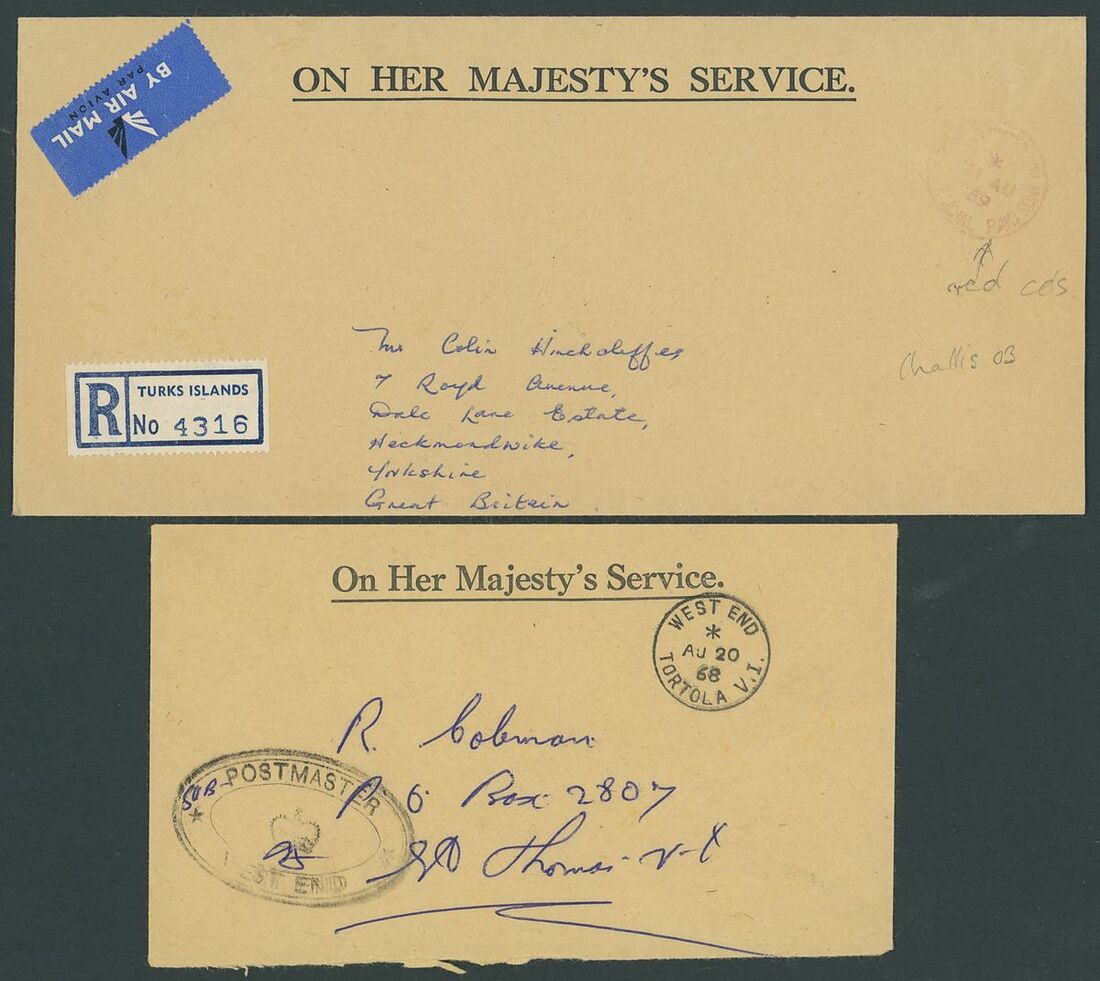 BY AIR MAIL
PAR AVION
ON HER MAJESTY'S SERVICE.
*
AU
69
PAID
red cds
Challis OB
R TURKS ISLANDS
No 4316
Colin Hinchcliffe
7 Royd Avenue,
Dale Lane Estate,
Heckmondwike,
Yorkshire
Great Britain
On Her Majesty's Service.
WEST END
*
AU 20
68
TORTOLA V.I.
R.
P O Box 2807
St Thomas V-I
SUB-POSTMASTER
WEST END